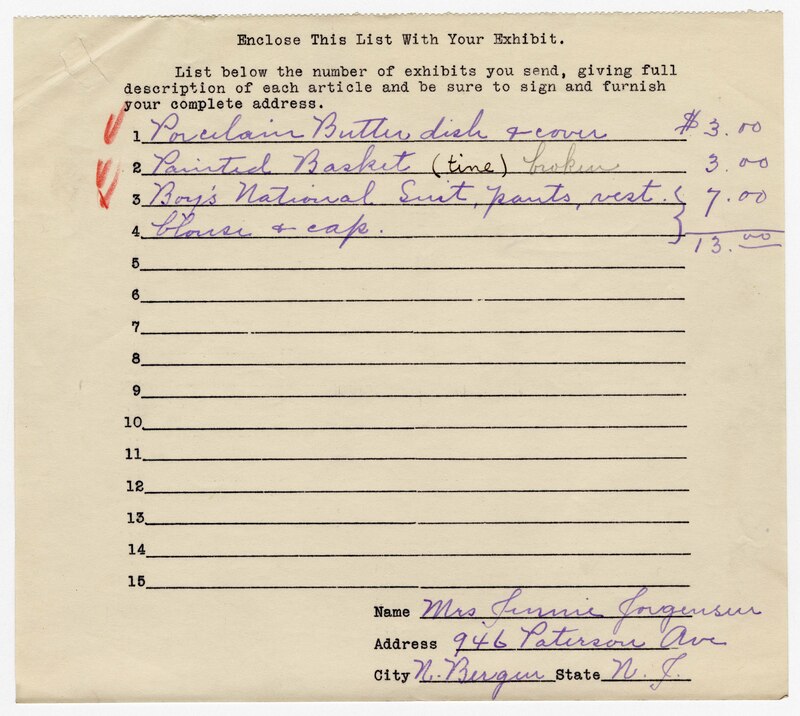 Enclose This List With Your Exhibit.
List below the number of exhibits you send, giving full
description of each article and be sure to sign and furnish
your complete address.
1 Porcelain Butter dish & cover $3.00
2 Painted Basket (tine) broken 3.00
3 Boy's National Suit, pants, vest. 7.00
4 blouse & cap. 13.00
5
6
7
8
9
10
11
12
13
14
15
Name Mrs Jennie Jorgensen
Address 946 Paterson Ave
City N. Bergen State N. J.